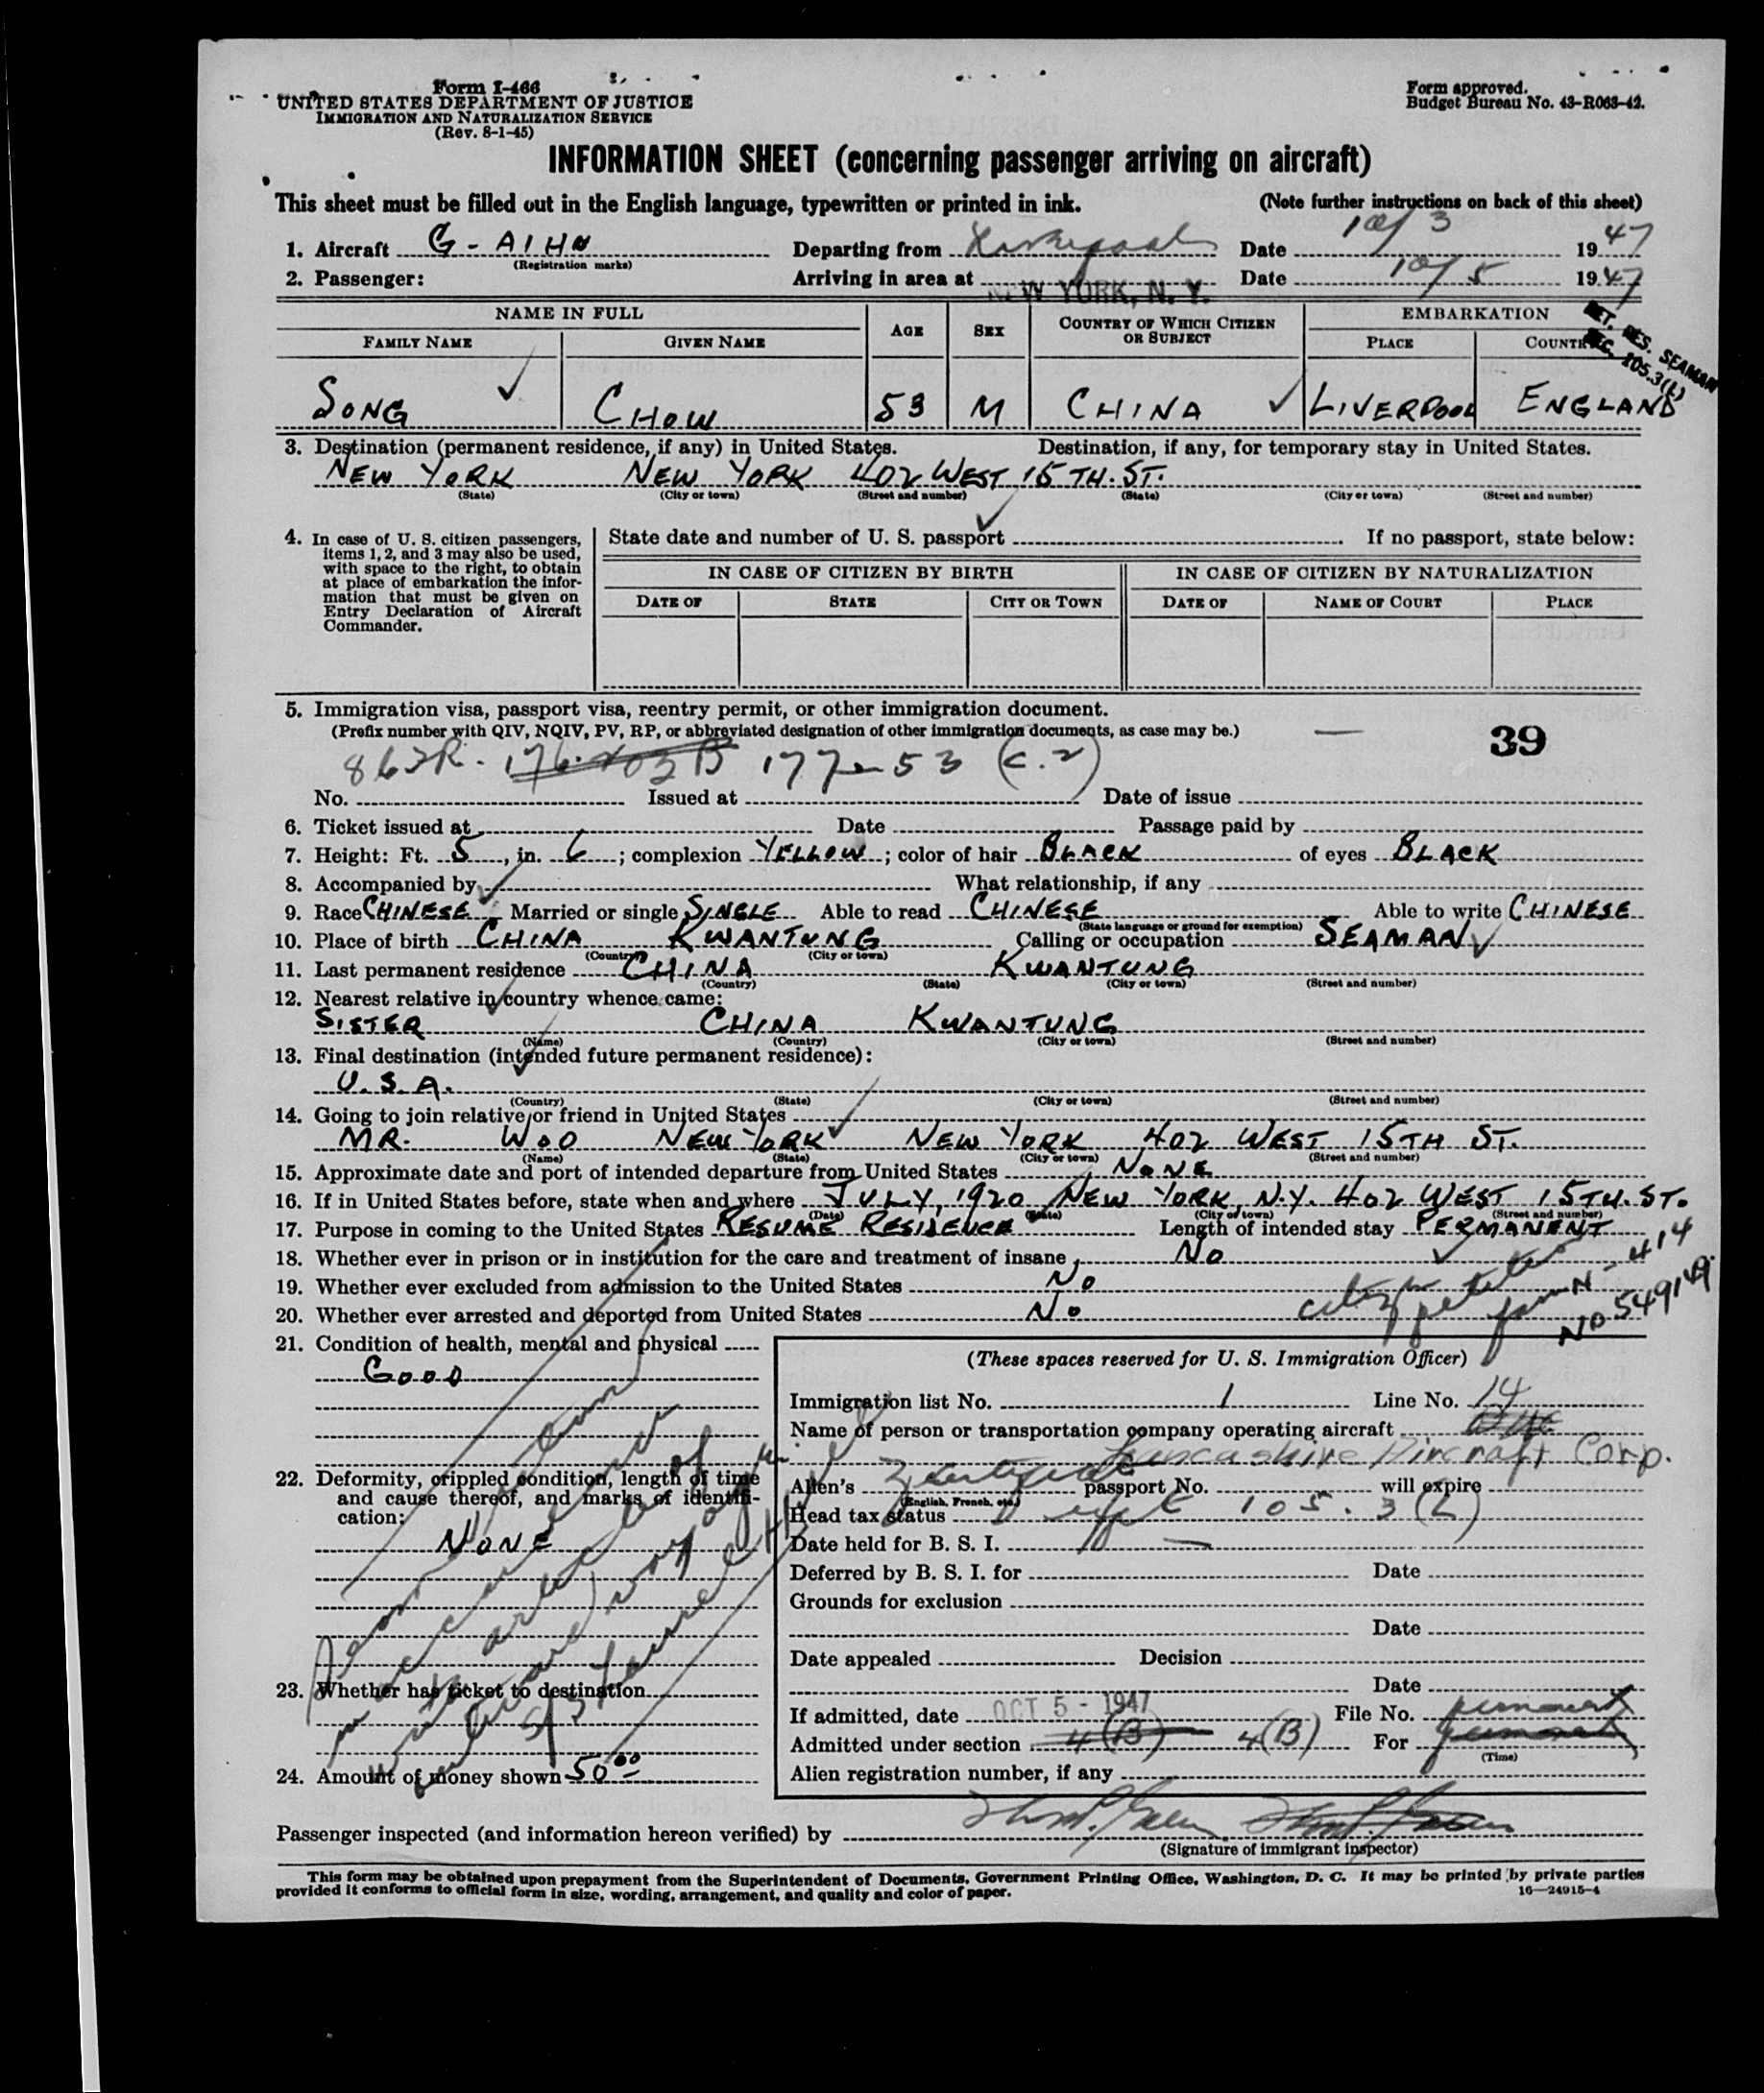 Form I-466
UNITED STATES DEPARTMENT OF JUSTICE
IMMIGRATION AND NATURALIZATION SERVICE
(Rev. 8-1-45)
Form approved.
Budget Bureau No. 43-R063-42.
INFORMATION SHEET (concerning passenger arriving on aircraft)
This sheet must be filled out in the English language, typewritten or printed in ink. (Note further instructions on back of this sheet)
1. Aircraft G-AIHN Departing from Date 10/3 1947
(Registration marks)
2. Passenger: Arriving in area at NEW YORK, N. Y. Date 10/5 1947
RET. RES. SEAMAN
SEC. 105.3(L)
NAME IN FULL AGE SEX COUNTRY OF WHICH CITIZEN OR SUBJECT EMBARKATION
FAMILY NAME GIVEN NAME PLACE COUNTRY
SONG CHOW 53 M CHINA LIVERPOOL ENGLAND
3. Destination (permanent residence, if any) in United States. Destination, if any, for temporary stay in United States.
NEW YORK NEW YORK 402 WEST 15TH. ST.
(State) (City or town) (Street and number) (State) (City or town) (Street and number)
4. In case of U. S. citizen passengers, items 1, 2, and 3 may also be used, with space to the right, to obtain at place of embarkation the information that must be given on Entry Declaration of Aircraft Commander.
State date and number of U. S. passport If no passport, state below:
IN CASE OF CITIZEN BY BIRTH IN CASE OF CITIZEN BY NATURALIZATION
DATE OF STATE CITY OR TOWN DATE OF NAME OF COURT PLACE
5. Immigration visa, passport visa, reentry permit, or other immigration document.
(Prefix number with QIV, NQIV, PV, RP, or abbreviated designation of other immigration documents, as case may be.) — 39
862R - 177-53 (C.2)
No. Issued at Date of issue
6. Ticket issued at Date Passage paid by
7. Height: Ft. 5, in. 6; complexion YELLOW; color of hair BLACK of eyes BLACK
8. Accompanied by What relationship, if any
9. Race CHINESE Married or single SINGLE Able to read CHINESE Able to write CHINESE
(State language or ground for exemption)
10. Place of birth CHINA KWANTUNG Calling or occupation SEAMAN
(Country) (City or town)
11. Last permanent residence CHINA KWANTUNG
(Country) (State) (City or town) (Street and number)
12. Nearest relative in country whence came:
SISTER CHINA KWANTUNG
(Name) (Country) (City or town) (Street and number)
13. Final destination (intended future permanent residence):
U. S. A.
(Country) (State) (City or town) (Street and number)
14. Going to join relative or friend in United States
MR. WOO NEW YORK NEW YORK 402 WEST 15TH ST.
(Name) (State) (City or town) (Street and number)
15. Approximate date and port of intended departure from United States NONE
16. If in United States before, state when and where JULY, 1920 NEW YORK, N.Y. 402 WEST 15TH. ST.
(Date) (State) (City or town) (Street and number)
17. Purpose in coming to the United States RESUME RESIDENCE Length of intended stay PERMANENT
18. Whether ever in prison or in institution for the care and treatment of insane NO
19. Whether ever excluded from admission to the United States NO
20. Whether ever arrested and deported from United States NO
form N-414
No 549149
21. Condition of health, mental and physical
GOOD
22. Deformity, crippled condition, length of time and cause thereof, and marks of identification:
NONE
23. Whether has ticket to destination
24. Amount of money shown 50.00
(These spaces reserved for U. S. Immigration Officer)
Immigration list No. 1 Line No. 14
Name of person or transportation company operating aircraft
Lancashire Aircraft Corp.
Alien's passport No. will expire
(English, French, etc.)
Head tax status 105.3(L)
Date held for B. S. I. —
Deferred by B. S. I. for Date
Grounds for exclusion
Date
Date appealed Decision
Date
If admitted, date OCT 5 - 1947 File No.
Admitted under section 4(B) 4(B) For
(Time)
Alien registration number, if any
Passenger inspected (and information hereon verified) by
(Signature of immigrant inspector)
This form may be obtained upon prepayment from the Superintendent of Documents, Government Printing Office, Washington, D. C. It may be printed by private parties
provided it conforms to official form in size, wording, arrangement, and quality and color of paper. 16—24915-4